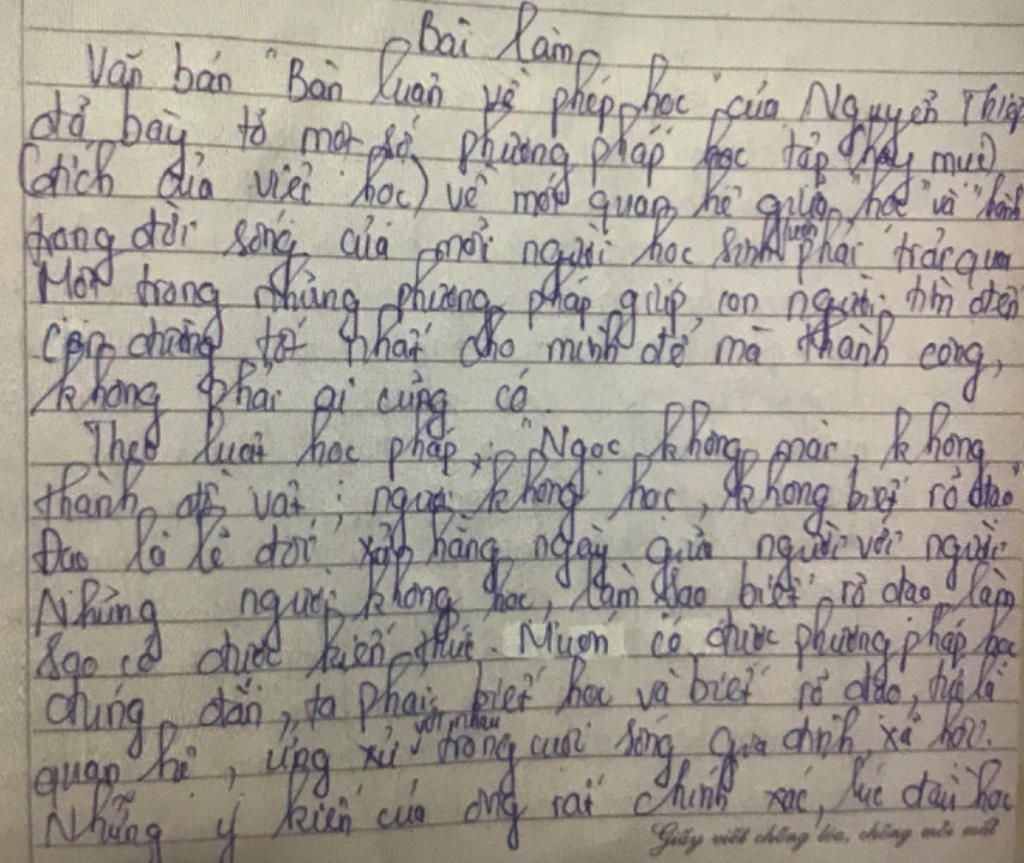 Bài làm
Văn bản "Bàn luận về phép học" của Nguyễn Thiếp
đã bày tỏ một số phương pháp học tập (hay mục
đích của việc học) về mối quan hệ giữa "học" và "hành"
trong đời sống của mỗi người học sinh luôn phải trải qua
Một trong những phương pháp giúp con người tìm đến
con đường tốt nhất cho mình để mà thành công,
không phải ai cũng có.
Theo luật học pháp, "Ngọc không mài, không
thành đồ vật; người không học, không biết rõ đạo"
Đạo là lẽ đối xử hằng ngày giữa người với người
Những người không học, làm sao biết rõ đạo, làm
sao có được kiến thức. Muốn có được phương pháp học
đúng đắn, ta phải biết học và biết rõ đạo, tức là
quan hệ, ứng xử với nhau trong cuộc sống gia đình, xã hội.
Những ý kiến của ông rất chính xác, lúc đầu học
Giấy viết chống lóa, chống mỏi mắt